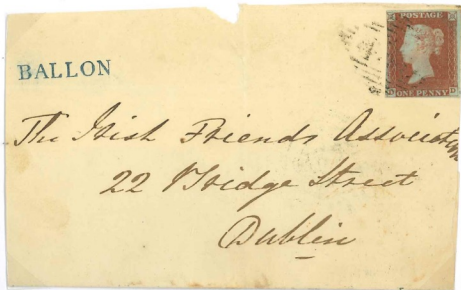 POSTAGE
BALLON
ONE PENNY D
The Irish Friends Association
22 Bridge Street
Dublin